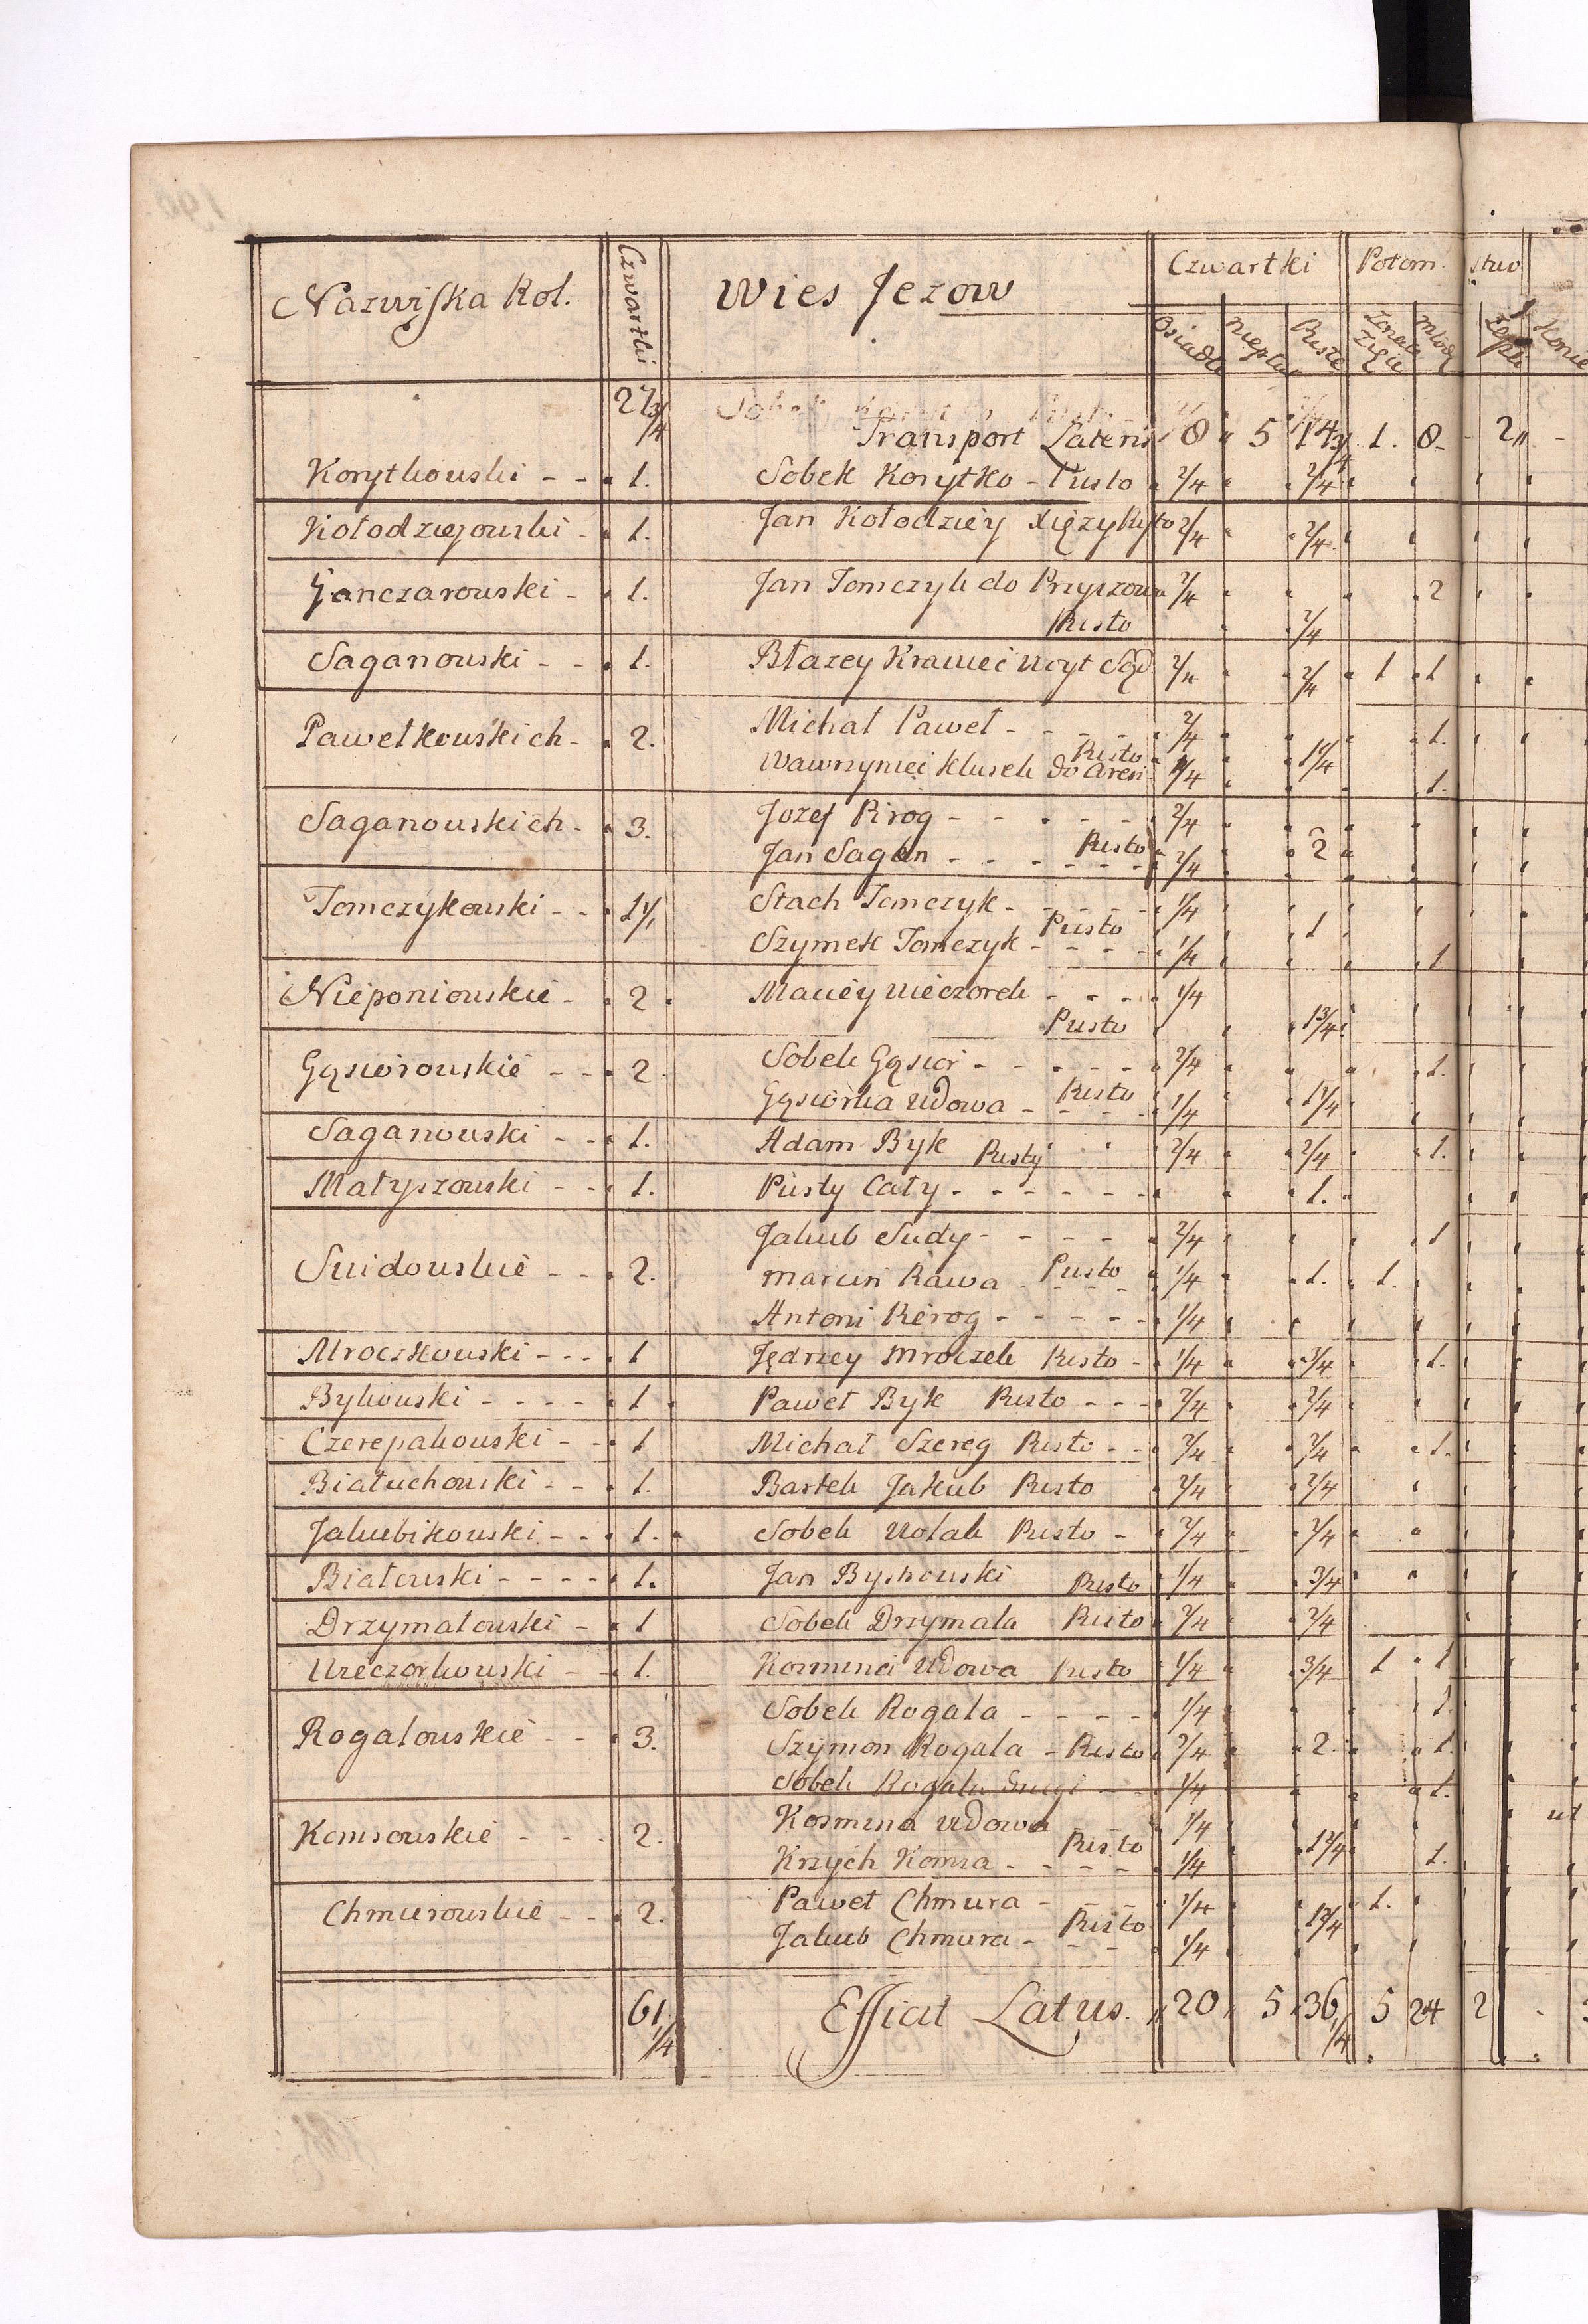 Nazwiska Rol. Czwartki Wies Jezow Czwartki Potom stwo
Osiadłe Puste Młodzi Konie
27 3/4 Transport Lateris 8 5 14 3/4 1. 8 2
Korytkowski - - 1. Sobek Korytko - Pusto 2/4 2/4
Kołodziejowski - 1. Jan Kołodziey Xięzy Pusto 2/4 2/4
Ganczarowski - 1. Jan Tomczyk do Przyszowa 2/4 2
Pusto 2/4
Saganowski - - 1. Błazey Krawiec Woyt Sąd 2/4 2/4 1 1
Pawełkowskich - 2. Michał Paweł - - - - 2/4 1.
Pusto 1 1/4
Wawrzyniec Klusek do Aren 1/4 1.
Saganowskich - 3. Jozef Pirog - - - - - 2/4
Pusto 2
Jan Sagan - - - - - - 2/4
Tomczykowski - - 1 1/1 Stach Tomczyk - - - - - 1/4
Pusto 1
Szymek Tomczyk - - - - 1/4 1
Nieponiowskie - 2 Maciey Wieczorek - - - 1/4
Pusto 1 3/4
Gąsiorowskie - - 2 Sobek Gąsior - - - - - 2/4 1.
Gąsiorka Wdowa - Pusto 1/4 1 1/4
Saganowski - - 1. Adam Byk Pusty 2/4 2/4 1.
Matyszowski - - 1. Pusty Cały - - - - - - 1.
Jakub Sudy - - - - 2/4 1
Suidowskie - - 2. Marcin Kawa Pusto 1/4 1. 1.
Antoni Pierog - - - - - 1/4
Mroczkowski - - - 1 Jędrzey Mroczek Pusto - 1/4 3/4 1.
Bykowski - - - - 1 Paweł Byk Pusto - - - 2/4 2/4
Czerepakowski - - 1 Michał Szereg Pusto - - 2/4 2/4 1.
Białuchowski - - 1. Bartek Jakub Pusto 2/4 2/4
Jakubikowski - - 1. Sobek Wolak Pusto - 2/4 2/4
Białowski - - - - 1. Jan Byskowski Pusto 1/4 3/4
Drzymałowski - 1 Sobek Drzymała Pusto 2/4 2/4
Wieczorkowski - - 1. Wdowa Pusto 1/4 3/4 1 1
Sobek Rogala - - - - 1/4 1.
Rogalowskie - - 3. Szymon Rogala - Pusto 2/4 2 1.
Sobek Rogala Drugi - 1/4 1.
Kosmina Wdowa 1/4
Komsowskie - - - 2. Pusto 1 2/4
Krzych Komsa - - - - 1/4 1.
Paweł Chmura - - - - 1/4 1.
Chmurowskie - - 2. Pusto 1 2/4
Jakub Chmura - - - 1/4
61 1/4 Efficit Latus. 20 5 36 1/4 5 24 2